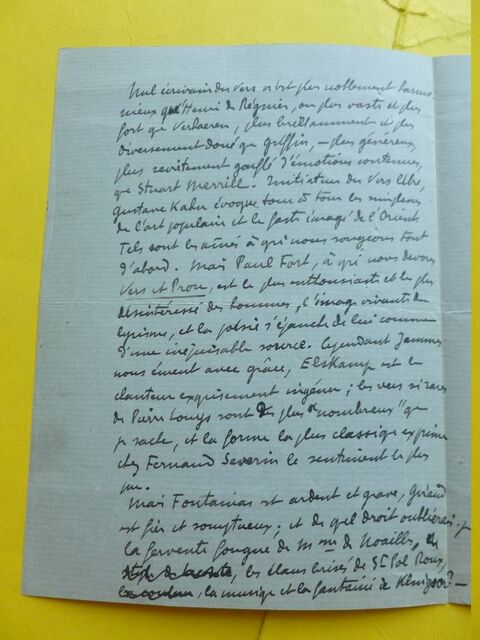 Nul écrivain des vers n'est plus noblement harmo
nieux qu'Henri de Régnier, ou plus vaste et plus
fort que Verhaeren, plus brillamment et plus
diversement doué que Griffin, — plus généreux,
plus secrètement gonflé d'émotions contenues
que Stuart Merrill. Initiateur du Vers libre,
Gustave Kahn évoque tour à tour les
de l'art populaire et le faste imagé de l'Orient
Tels sont les aînés à qui nous songions tout
d'abord. Mais Paul Fort, à qui nous devons
Vers et Prose, est le plus enthousiaste et le plus
désintéressé des hommes, l'image vivante du
lyrisme, et la poésie s'épanche de lui comme
d'une inépuisable source. Cependant Jammes
nous émeut avec grâce, Elskamp est le
chanteur exquisement ingénu ; les vers si rares
de Pierre Louys sont les plus "nombreux" que
je sache, et la forme la plus classique exprime
chez Fernand Severin le sentiment le plus
pur.
Mais Fontainas est ardent et grave, Giraud
est fier et somptueux ; et de quel droit oublierais-je
la fervente fougue de Mme de Noailles,
les élans brisés de St Pol Roux,
la musique et la fantaisie de Klingsor ? —